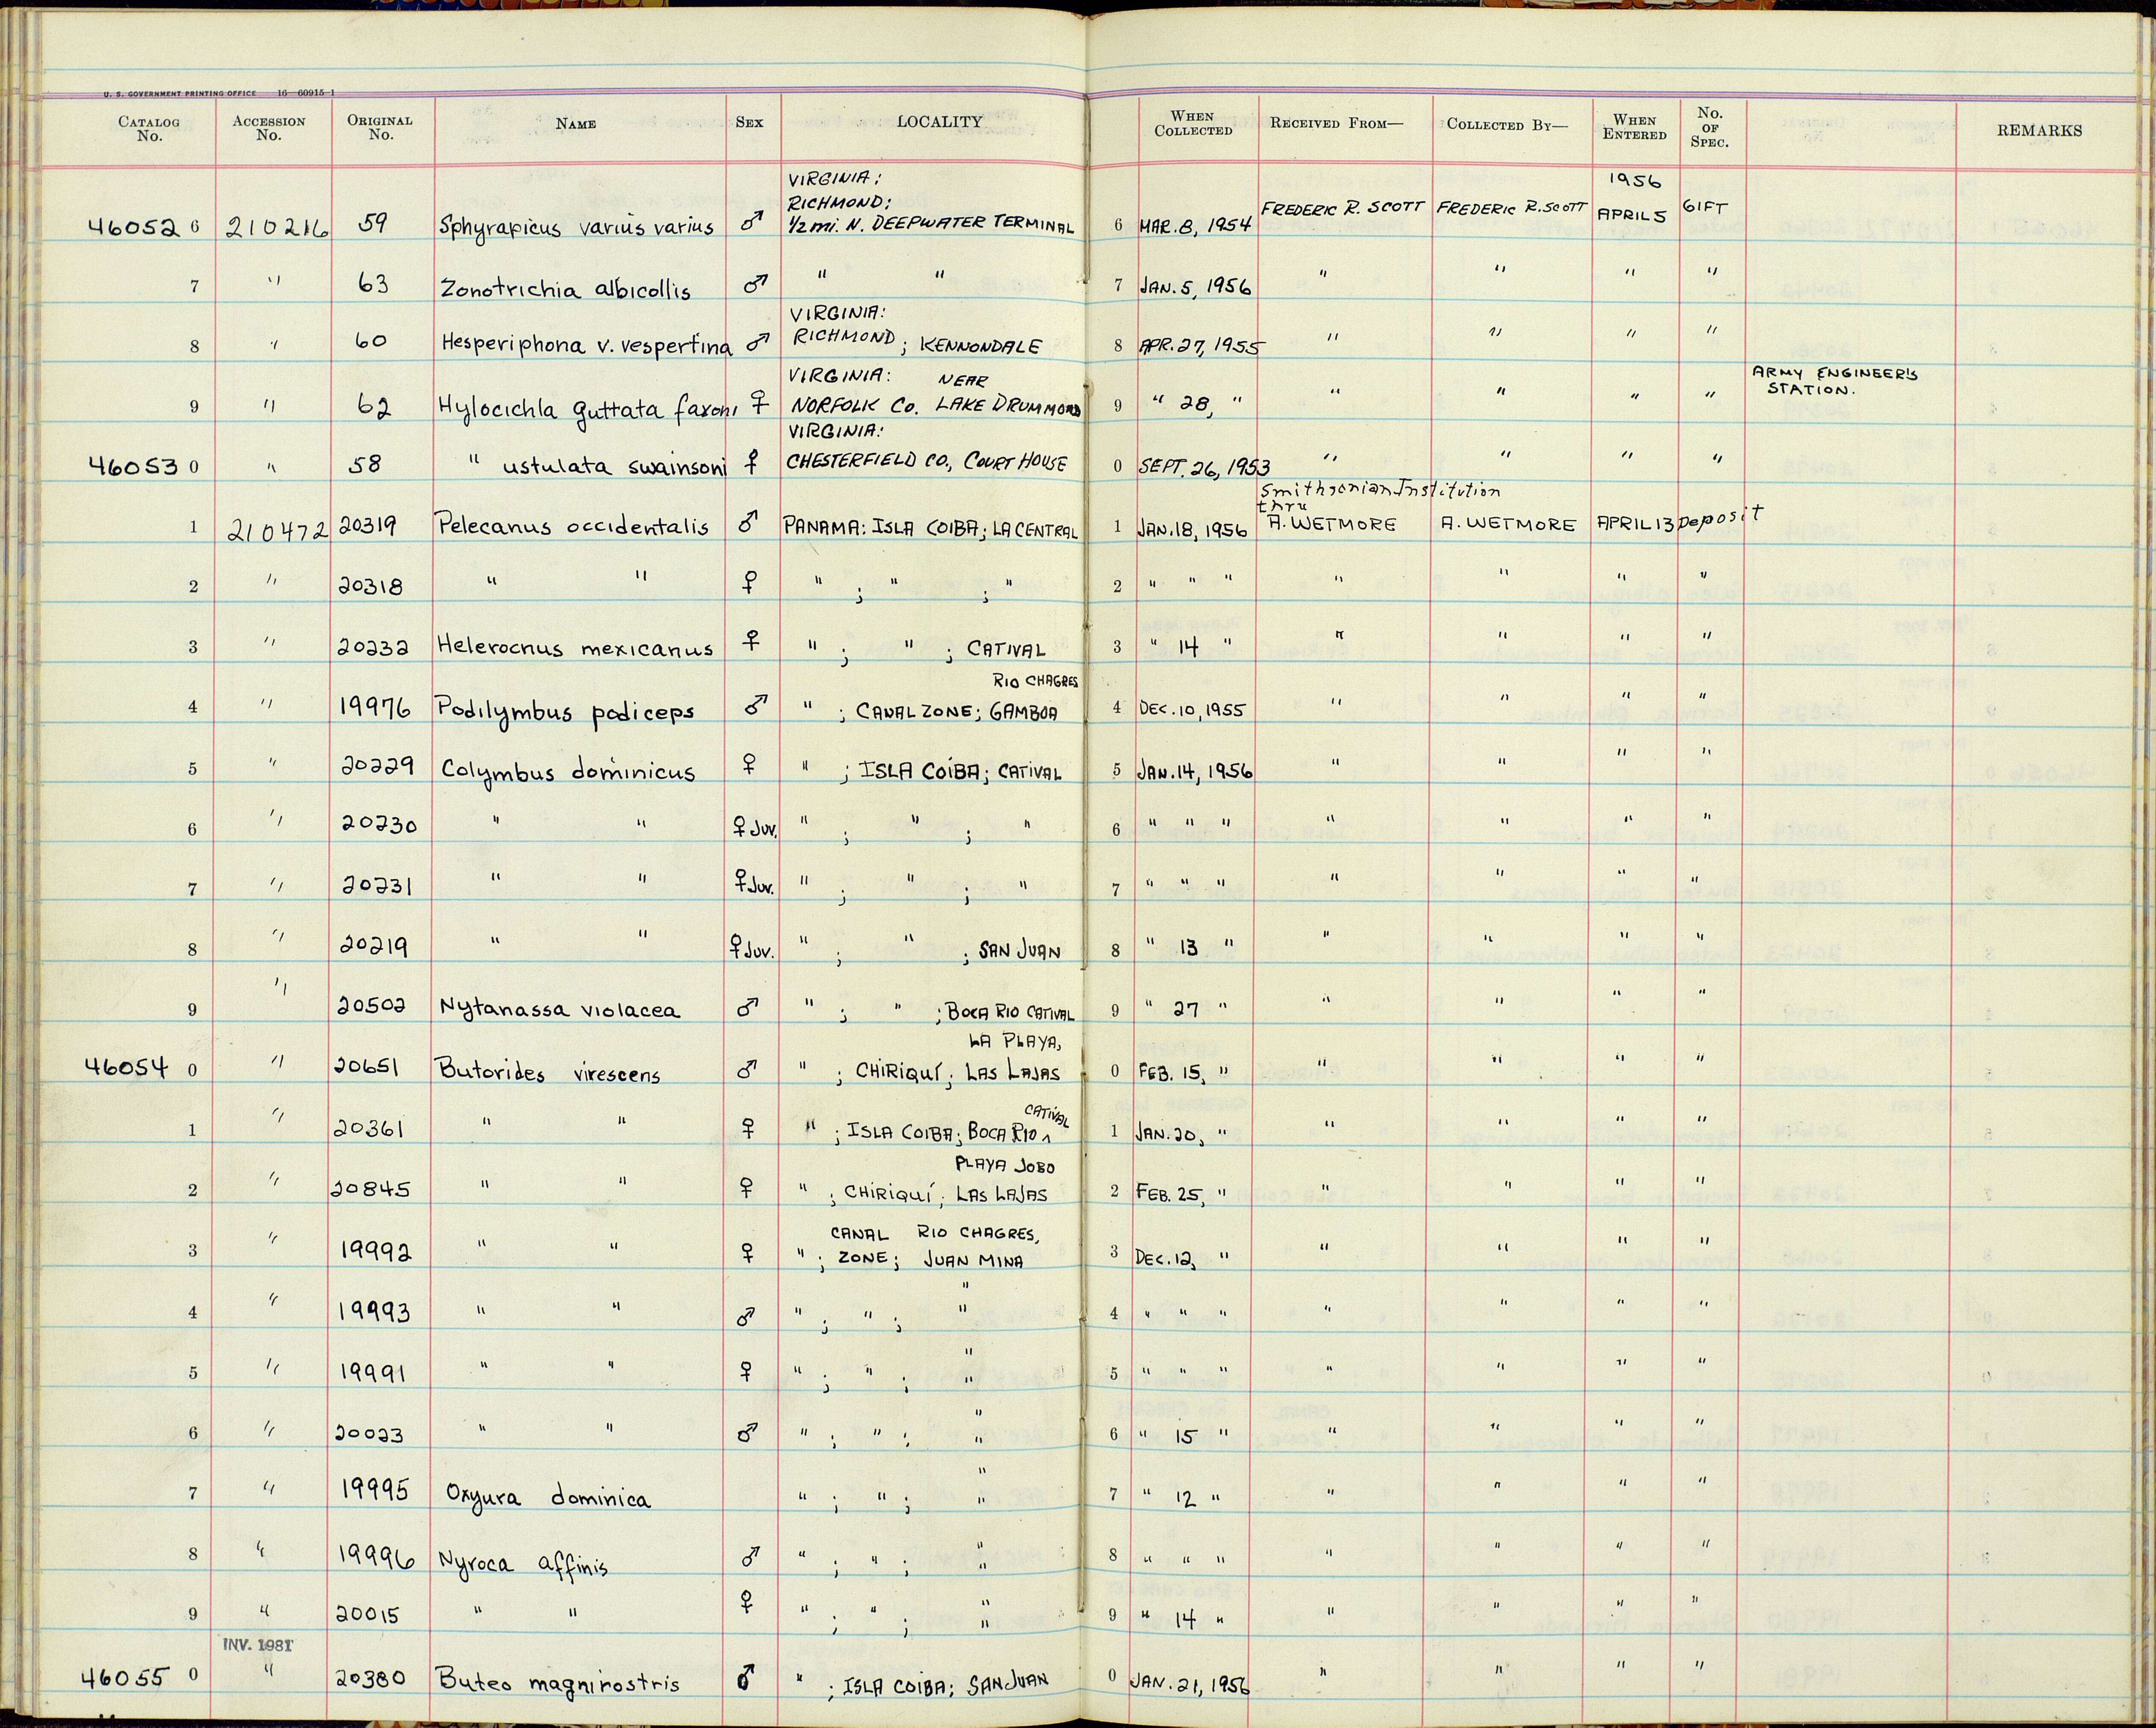 U. S. GOVERNMENT PRINTING OFFICE 16—60915-1
CATALOG No. ACCESSION No. ORIGINAL No. NAME SEX LOCALITY WHEN COLLECTED RECEIVED FROM— COLLECTED BY— WHEN ENTERED No. OF SPEC. REMARKS
VIRGINIA; 1956
RICHMOND;
46052 6 210216 59 Sphyrapicus varius varius ♂ 1/2 mi. N. DEEPWATER TERMINAL 6 MAR. 8, 1954 FREDERIC R. SCOTT FREDERIC R. SCOTT APRIL 5 GIFT
7 " 63 Zonotrichia albicollis ♂ " " 7 JAN. 5, 1956 " " " "
VIRGINIA:
8 " 60 Hesperiphona v. vespertina ♂ RICHMOND; KENNONDALE 8 APR. 27, 1955 " " " "
VIRGINIA: NEAR ARMY ENGINEER'S
9 " 62 Hylocichla guttata faxoni ♀ NORFOLK Co. LAKE DRUMMOND 9 " 28, " " " " " STATION.
VIRGINIA:
46053 0 " 58 " ustulata swainsoni ♀ CHESTERFIELD CO., COURT HOUSE 0 SEPT. 26, 1953 " " " "
Smithsonian Institution
thru
1 210472 20319 Pelecanus occidentalis ♂ PANAMA: ISLA COIBA; LA CENTRAL 1 JAN. 18, 1956 A. WETMORE A. WETMORE APRIL 13 Deposit
2 " 20318 " " ♀ " ; " ; " 2 " " " " " " "
3 " 20232 Helerocnus mexicanus ♀ " ; " ; CATIVAL 3 " 14 " " " " "
RIO CHAGRES
4 " 19976 Podilymbus podiceps ♂ " ; CANAL ZONE; GAMBOA 4 DEC. 10, 1955 " " " "
5 " 20229 Colymbus dominicus ♀ " ; ISLA COIBA; CATIVAL 5 JAN. 14, 1956 " " " "
6 " 20230 " " ♀ Juv. " ; " ; " 6 " " " " " " "
7 " 20231 " " ♀ Juv. " ; " ; " 7 " " " " " " "
8 " 20219 " " ♀ Juv. " ; " ; SAN JUAN 8 " 13 " " " " "
9 " 20502 Nytanassa violacea ♂ " ; " ; BOCA RIO CATIVAL 9 " 27 " " " " "
LA PLAYA,
46054 0 " 20651 Butorides virescens ♂ " ; CHIRIQUÍ; LAS LAJAS 0 FEB. 15, " " " " "
CATIVAL
1 " 20361 " " ♀ " ; ISLA COIBA; BOCA RIO ^ 1 JAN. 20, " " " " "
PLAYA JOBO
2 " 20845 " " ♀ " ; CHIRIQUÍ; LAS LAJAS 2 FEB. 25, " " " " "
CANAL RIO CHAGRES,
3 " 19992 " " ♀ " ; ZONE; JUAN MINA 3 DEC. 12, " " " " "
"
4 " 19993 " " ♂ " ; " ; " 4 " " " " " " "
"
5 " 19991 " " ♀ " ; " ; " 5 " " " " " " "
"
6 " 20023 " " ♂ " ; " ; " 6 " 15 " " " " "
"
7 " 19995 Oxyura dominica " ; " ; " 7 " 12 " " " " "
"
8 " 19996 Nyroca affinis ♂ " ; " ; " 8 " " " " " " "
"
9 " 20015 " " ♀ " ; " ; " 9 " 14 " " " " "
INV. 1981
46055 0 " 20380 Buteo magnirostris ♂ " ; ISLA COIBA; SAN JUAN 0 JAN. 21, 1956 " " " "